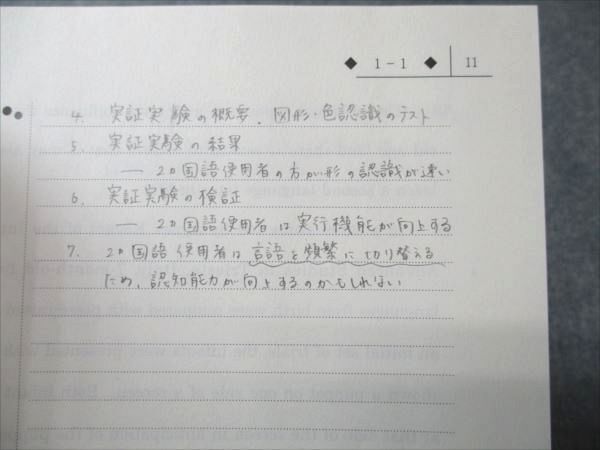 ◆ 1－1 ◆ 11
4. 実証実験の概要. 図形・色認識のテスト
5. 実証実験の結果
― 2ヵ国語使用者の方が形の認識が速い
6. 実証実験の検証
― 2ヵ国語使用者は実行機能が向上する
7. 2ヵ国語使用者は言語を頻繁に切り替える
ため、認知能力が向上するのかもしれない